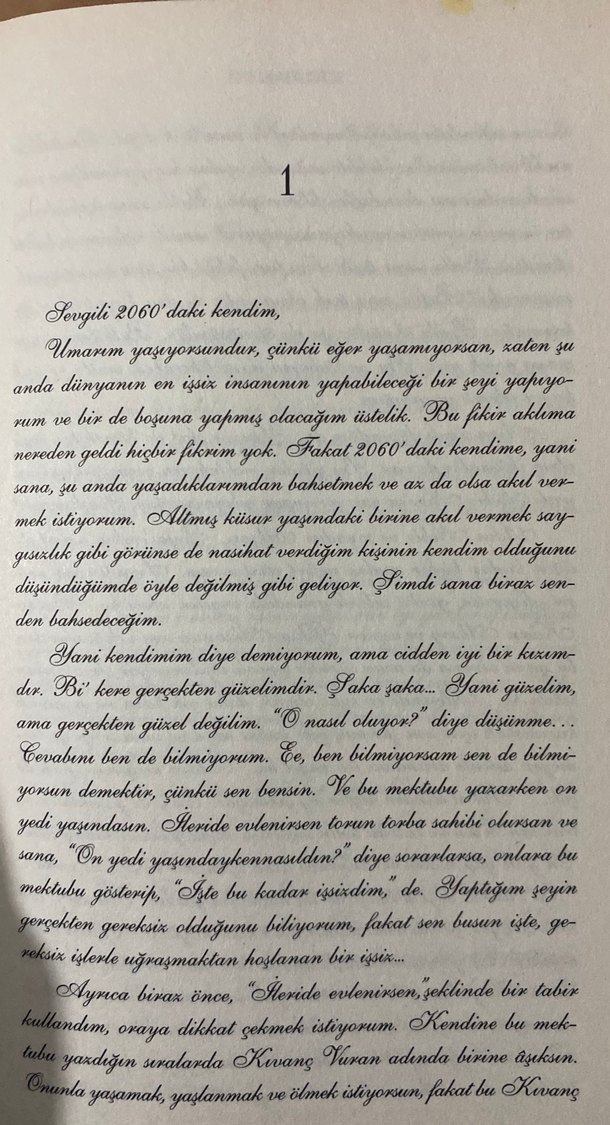 1
Sevgili 2060'daki kendim,
Umarım yaşıyorsundur, çünkü eğer yaşamıyorsan, zaten şu
anda dünyanın en işsiz insanının yapabileceği bir şeyi yapıyo-
rum ve bir de boşuna yapmış olacağım üstelik. Bu fikir aklıma
nereden geldi hiçbir fikrim yok. Fakat 2060'daki kendime, yani
sana, şu anda yaşadıklarımdan bahsetmek ve az da olsa akıl ver-
mek istiyorum. Altmış küsur yaşındaki birine akıl vermek say-
gısızlık gibi görünse de nasihat verdiğim kişinin kendim olduğunu
düşündüğümde öyle değilmiş gibi geliyor. Şimdi sana biraz sen-
den bahsedeceğim.
Yani kendimim diye demiyorum, ama cidden iyi bir kızım-
dır. Bi' kere gerçekten güzelimdir. Şaka şaka... Yani güzelim,
ama gerçekten güzel değilim. "O nasıl oluyor?" diye düşünme...
Cevabını ben de bilmiyorum. Ee, ben bilmiyorsam sen de bilmi-
yorsun demektir, çünkü sen bensin. Ve bu mektubu yazarken on
yedi yaşındasın. İleride evlenirsen torun torba sahibi olursan ve
sana, "On yedi yaşındaykennasıldın?" diye sorarlarsa, onlara bu
mektubu gösterip, "İşte bu kadar işsizdim," de. Yaptığım şeyin
gerçekten gereksiz olduğunu biliyorum, fakat sen busun işte, ge-
reksiz işlerle uğraşmaktan hoşlanan bir işsiz...
Ayrıca biraz önce, "İleride evlenirsen,"şeklinde bir tabir
kullandım, oraya dikkat çekmek istiyorum. Kendine bu mek-
tubu yazdığın sıralarda Kıvanç Vuran adında birine âşıksın.
Onunla yaşamak, yaşlanmak ve ölmek istiyorsun, fakat bu Kıvanç